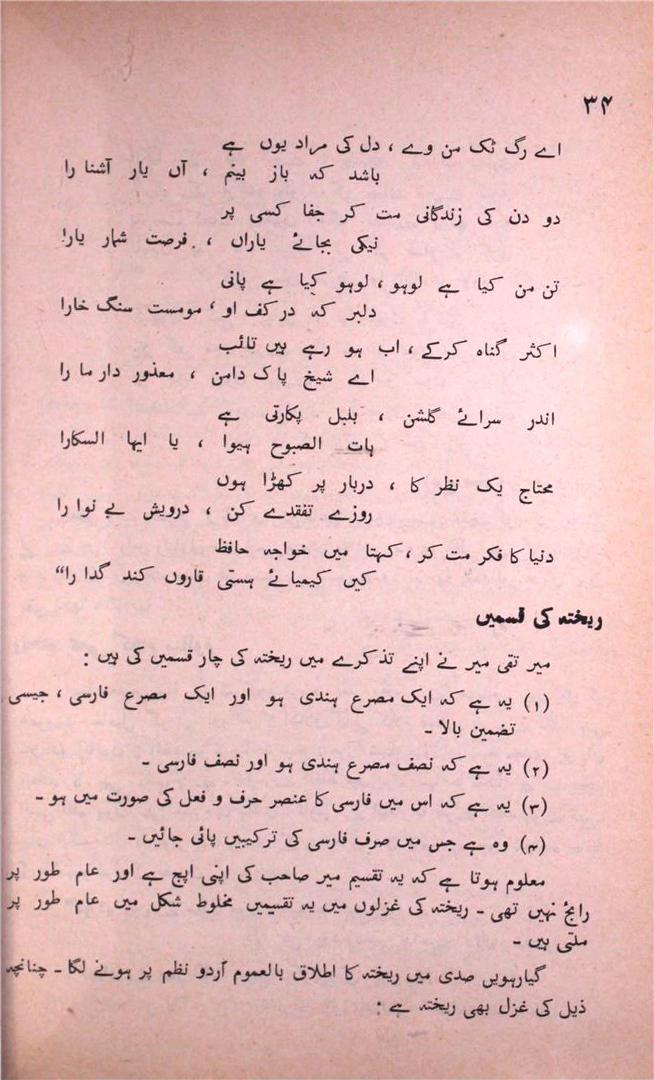 ۳۴
اے رگ ٹک من وے ، دل کی مراد یوں ہے
باشد کہ باز بینم ، آں یار آشنا را
دو دن کی زندگانی مت کر جفا کسی پر
نیکی بجائے یاراں ، فرصت شمار یارا!
تن من کیا ہے لوہو ، لوہو کیا ہے پانی
دلبر کہ در کف او ، مومست سنگ خارا
اکثر گناہ کرکے ، اب ہو رہے ہیں تائب
اے شیخ پاک دامن ، معذور دار ما را
اندر سرائے گلشن ، بلبل پکارتی ہے
ہات الصبوح ہیوا ، یا ایہا السکارا
محتاج یک نظر کا ، دربار پر کھڑا ہوں
روزے تفقدے کن ، درویش بے نوا را
دنیا کا فکر مت کر ، کہتا میں خواجہ حافظ
کیں کیمیائے ہستی قاروں کند گدا را“
ریختہ کی قسمیں
میر تقی میر نے اپنے تذکرے میں ریختہ کی چار قسمیں کی ہیں :
(۱) یہ ہے کہ ایک مصرع ہندی ہو اور ایک مصرع فارسی ، جیسی
تضمین بالا ۔
(۲) یہ ہے کہ نصف مصرع ہندی ہو اور نصف فارسی ۔
(۳) یہ ہے کہ اس میں فارسی کا عنصر حرف و فعل کی صورت میں ہو ۔
(۴) وہ ہے جس میں صرف فارسی کی ترکیبیں پائی جائیں ۔
معلوم ہوتا ہے کہ یہ تقسیم میر صاحب کی اپنی اپج ہے اور عام طور پر
رائج نہیں تھی ۔ ریختہ کی غزلوں میں یہ تقسیمیں مخلوط شکل میں عام طور پر
ملتی ہیں ۔
گیارہویں صدی میں ریختہ کا اطلاق بالعموم اُردو نظم پر ہونے لگا ۔ چنانچہ
ذیل کی غزل بھی ریختہ ہے :